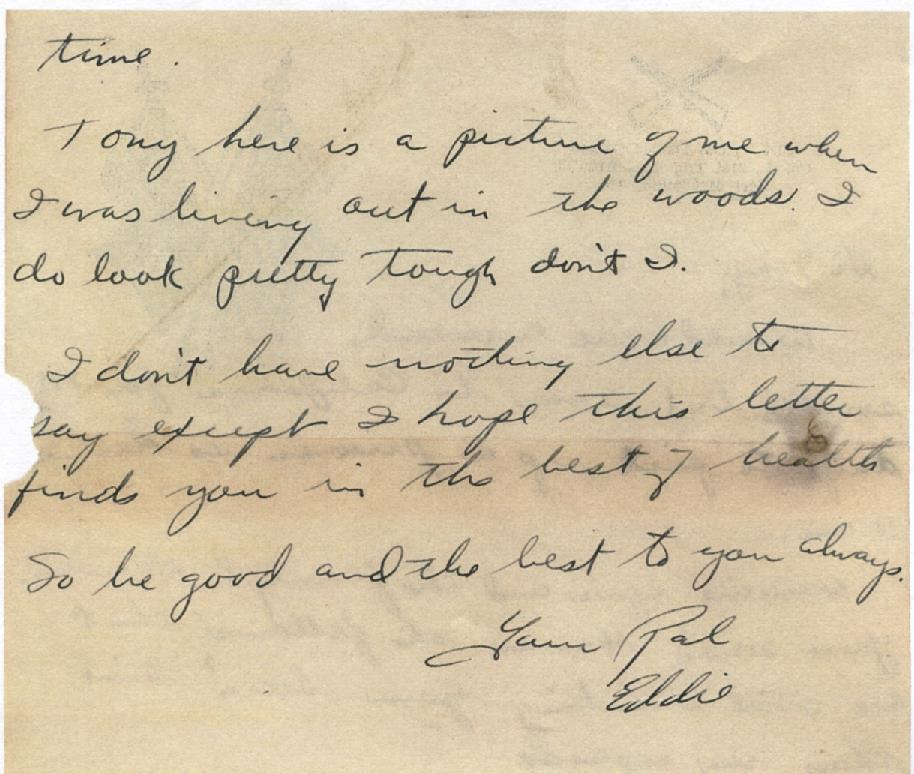 time.
Tony here is a picture of me when
I was living out in the woods. I
do look pretty tough don't I.
I don't have nothing else to
say except I hope this letter
finds you in the best of health
So be good and the best to you always.
Your Pal
Eddie